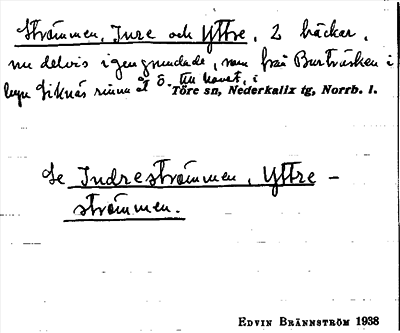 Strömmen, Inre och Yttre, 2 bäckar,
nu delvis igengrundade, som från Burträsken i
byn Siknäs rinna åt ö. till havet, i
Töre sn, Nederkalix tg, Norrb. l.
Se Indreströmmen, Yttre-
strömmen.
EDVIN BRÄNNSTRÖM 1938